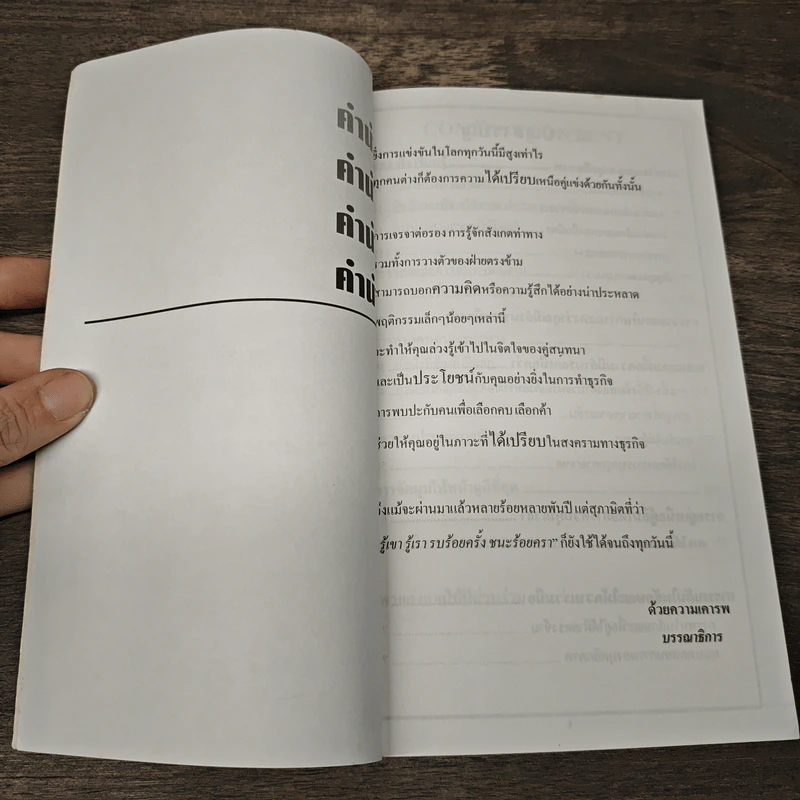 คำน
คำน
คำน
คำน
การแข่งขันในโลกทุกวันนี้มีสูงเท่าไร
ทุกคนต่างก็ต้องการความได้เปรียบเหนือคู่แข่งด้วยกันทั้งนั้น
การเจรจาต่อรอง การรู้จักสังเกตท่าทาง
รวมทั้งการวางตัวของฝ่ายตรงข้าม
สามารถบอกความคิดหรือความรู้สึกได้อย่างน่าประหลาด
พฤติกรรมเล็กๆน้อยๆเหล่านี้
จะทำให้คุณล่วงรู้เข้าไปในจิตใจของคู่สนทนา
และเป็นประโยชน์กับคุณอย่างยิ่งในการทำธุรกิจ
การพบปะกับคนเพื่อเลือกคบ เลือกค้า
ช่วยให้คุณอยู่ในภาวะที่ได้เปรียบในสงครามทางธุรกิจ
แม้จะผ่านมาแล้วหลายร้อยหลายพันปี แต่สุภาษิตที่ว่า
รู้เขา รู้เรา รบร้อยครั้ง ชนะร้อยครา” ก็ยังใช้ได้จนถึงทุกวันนี้
ด้วยความเคารพ
บรรณาธิการ